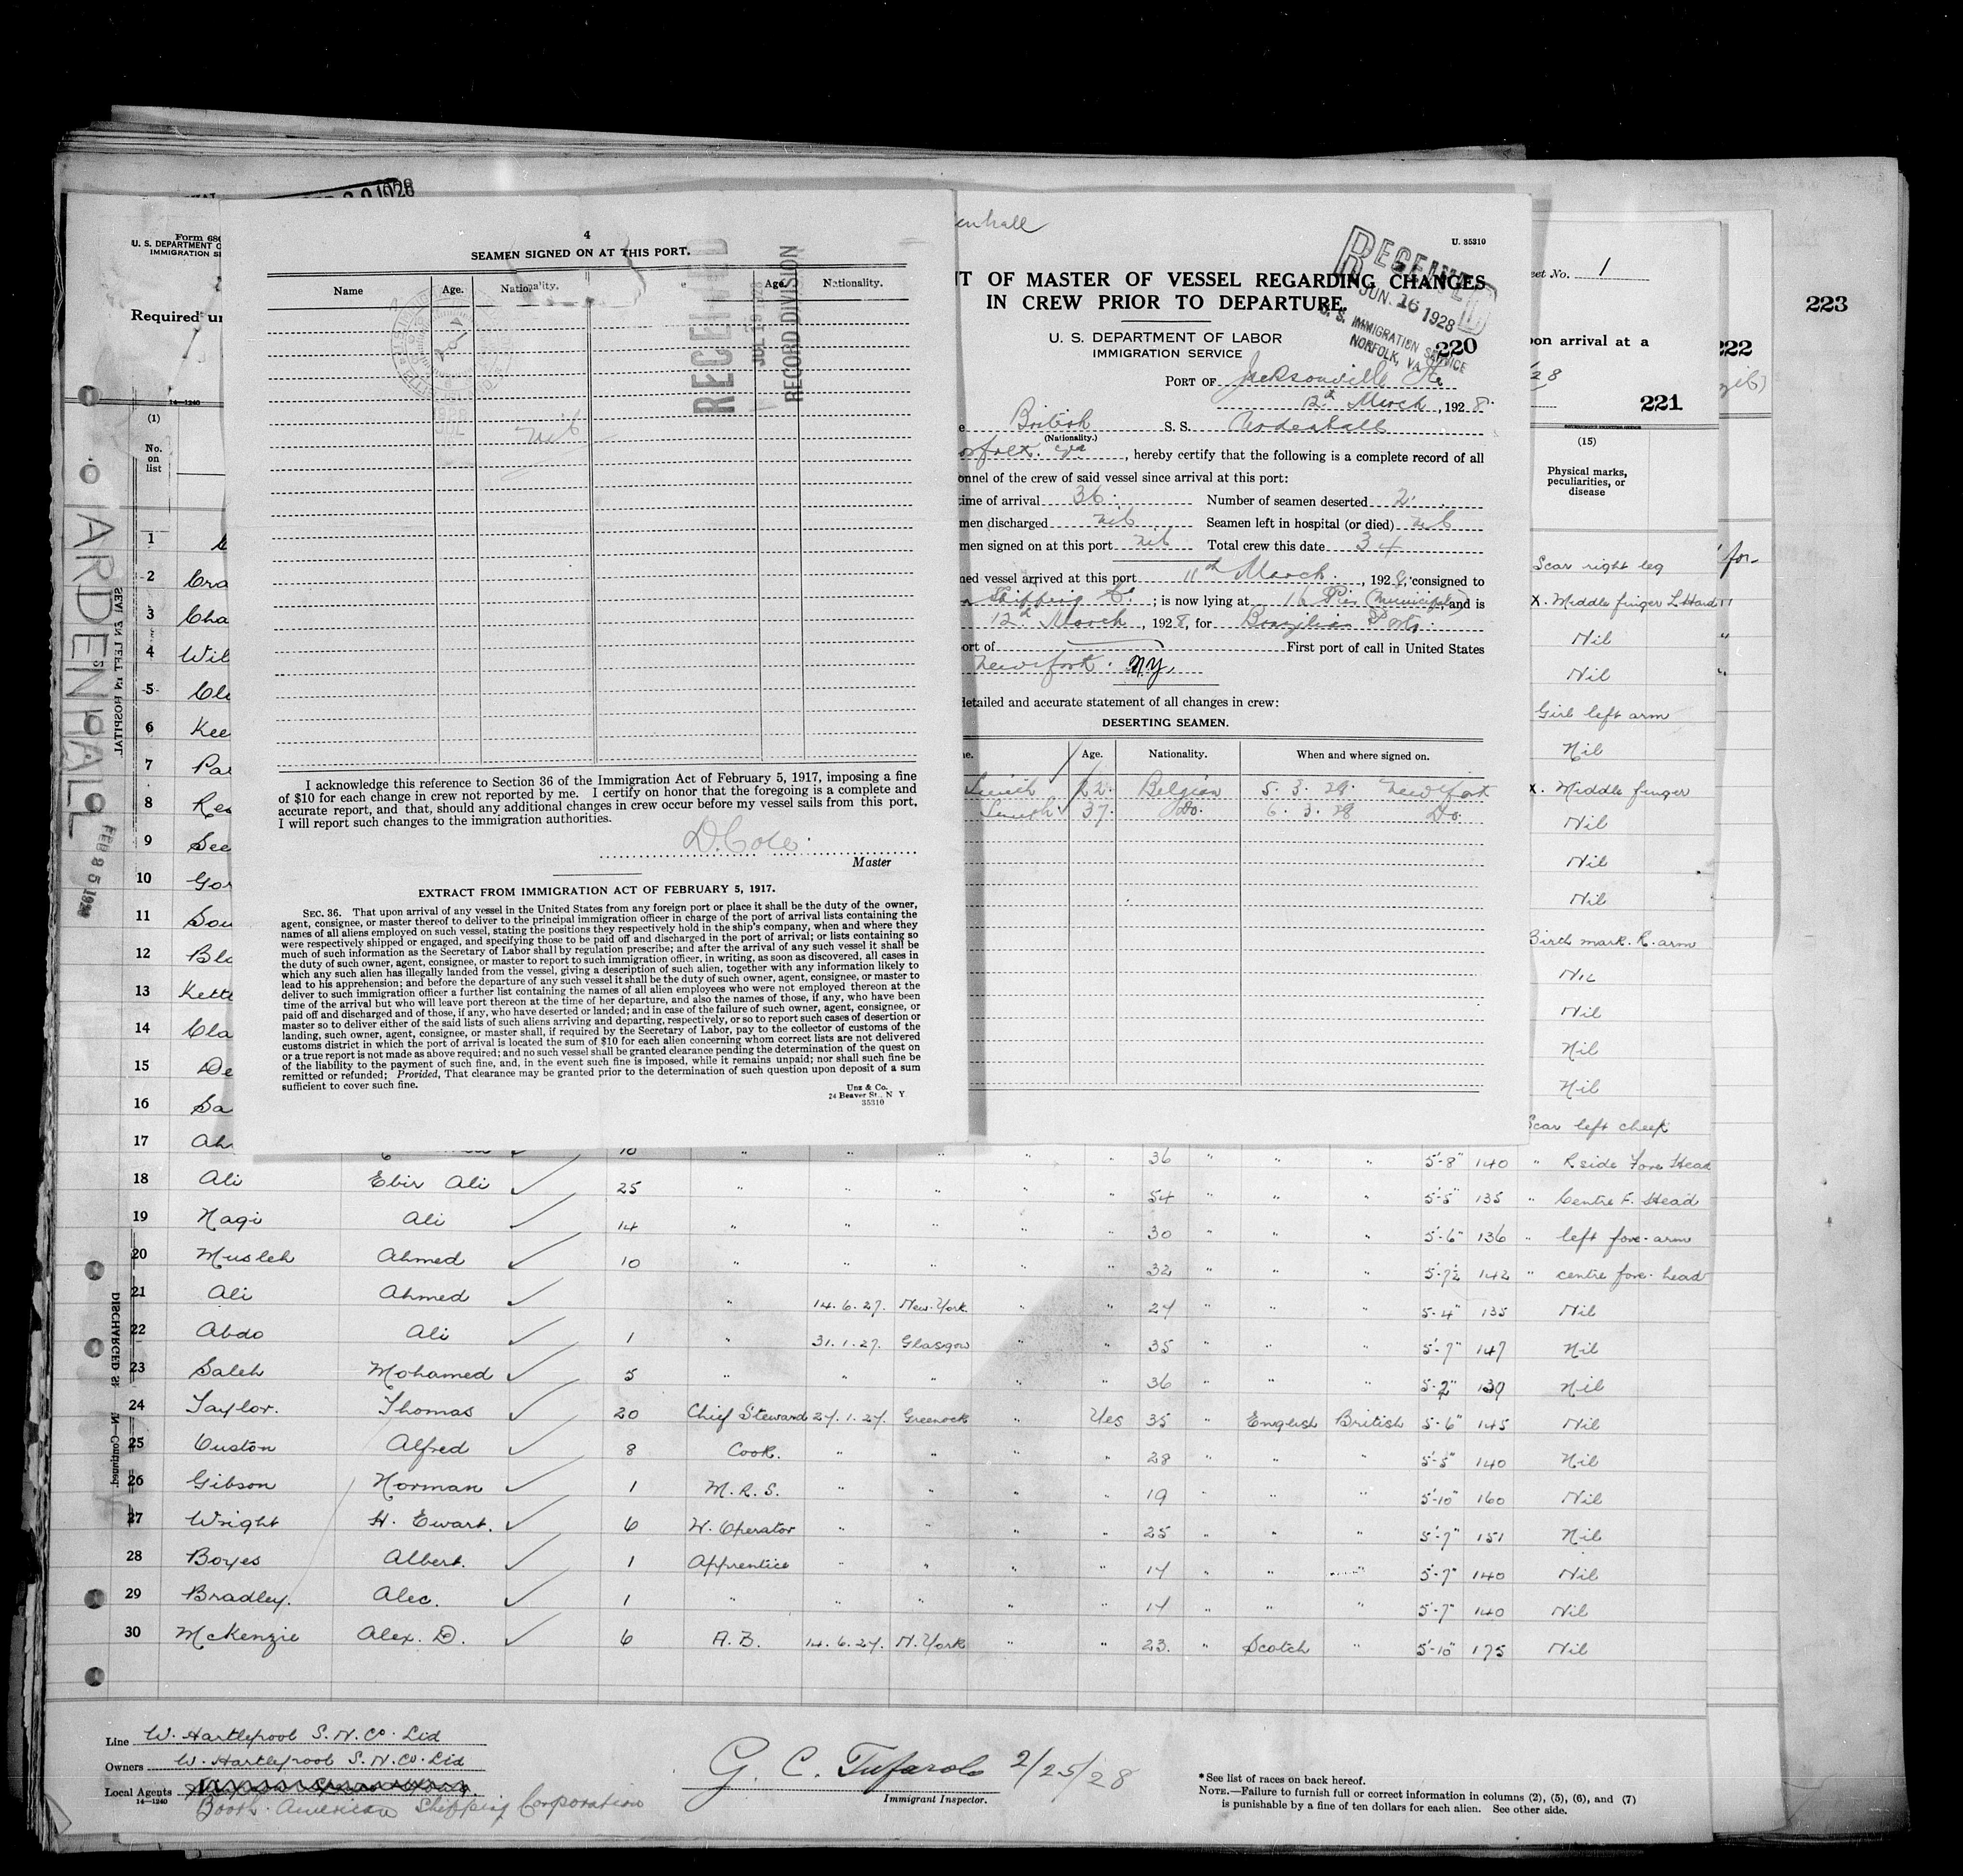 1928
Form 680
U. S. DEPARTMENT O
IMMIGRATION SE
Required un
14—1240
(1)
No.
on
list
ARDENHALL
FEB 25 1928
SEA EN LEFT IN HOSPITAL.
DISCHARGED SE N—Continued.
4
SEAMEN SIGNED ON AT THIS PORT.
Name Age. Nationality. Age. Nationality.
RECEIVED
JUL 19 1928
RECORD DIVISION
1928
JUL
nil
I acknowledge this reference to Section 36 of the Immigration Act of February 5, 1917, imposing a fine
of $10 for each change in crew not reported by me. I certify on honor that the foregoing is a complete and
accurate report, and that, should any additional changes in crew occur before my vessel sails from this port,
I will report such changes to the immigration authorities.
D. Cole.
Master
EXTRACT FROM IMMIGRATION ACT OF FEBRUARY 5, 1917.
SEC. 36. That upon arrival of any vessel in the United States from any foreign port or place it shall be the duty of the owner,
agent, consignee, or master thereof to deliver to the principal immigration officer in charge of the port of arrival lists containing the
names of all aliens employed on such vessel, stating the positions they respectively hold in the ship's company, when and where they
were respectively shipped or engaged, and specifying those to be paid off and discharged in the port of arrival; or lists containing so
much of such information as the Secretary of Labor shall by regulation prescribe; and after the arrival of any such vessel it shall be
the duty of such owner, agent, consignee, or master to report to such immigration officer, in writing, as soon as discovered, all cases in
which any such alien has illegally landed from the vessel, giving a description of such alien, together with any information likely to
lead to his apprehension; and before the departure of any such vessel it shall be the duty of such owner, agent, consignee, or master to
deliver to such immigration officer a further list containing the names of all alien employees who were not employed thereon at the
time of the arrival but who will leave port thereon at the time of her departure, and also the names of those, if any, who have been
paid off and discharged and of those, if any, who have deserted or landed; and in case of the failure of such owner, agent, consignee, or
master so to deliver either of the said lists of such aliens arriving and departing, respectively, or so to report such cases of desertion or
landing, such owner, agent, consignee, or master shall, if required by the Secretary of Labor, pay to the collector of customs of the
customs district in which the port of arrival is located the sum of $10 for each alien concerning whom correct lists are not delivered
or a true report is not made as above required; and no such vessel shall be granted clearance pending the determination of the quest on
of the liability to the payment of such fine, and, in the event such fine is imposed, while it remains unpaid; nor shall such fine be
remitted or refunded; Provided, That clearance may be granted prior to the determination of such question upon deposit of a sum
sufficient to cover such fine.
Unz & Co.
24 Beaver St., N Y
35310
enhall
U. 35310
T OF MASTER OF VESSEL REGARDING CHANGES
IN CREW PRIOR TO DEPARTURE.
U. S. DEPARTMENT OF LABOR
IMMIGRATION SERVICE
RECEIVED
JUN. 16 1928
U. S. IMMIGRATION SERVICE
NORFOLK, VA.
220
PORT OF Jacksonville Fla
12th March, 1928.
British S. S. Ardenhall
(Nationality.)
orfolk. Va, hereby certify that the following is a complete record of all
onnel of the crew of said vessel since arrival at this port:
time of arrival 36. Number of seamen deserted 2.
men discharged nil Seamen left in hospital (or died) nil
men signed on at this port nil Total crew this date 34
ned vessel arrived at this port 11th March, 1928, consigned to
Shipping Co; is now lying at 16 Pier (Municipal), and is
12th March, 1928, for Brazilian Ports.
ort of First port of call in United States
New York. N.Y.
detailed and accurate statement of all changes in crew:
DESERTING SEAMEN.
e. Age. Nationality. When and where signed on.
22. Belgian 5. 3. 28. New York
37. Do. 6. 3. 28 Do.
eet No. 1
on arrival at a
28
221
222
223
(15)
Physical marks,
peculiarities, or
disease
1
2 Cra Scar right leg
3 Cha X. Middle finger L Hand
4 Wil Nil
5 Cle Nil
6 Kee Girl left arm
7 Pa Nil
8 Re X. Middle finger
9 See Nil
10 Gor Nil
11 Sou Nil
12 Bla Birth mark. R. arm
13 Kett Nil
14 Cla Nil
15 De Nil
16 Sa Nil
17 Ah Scar left cheek
10 " " " " " 36 " " " 5'-8" 140 " R side Fore Head
18 Ali Ebir Ali ✓ 25 " " " " " 54 " " " 5'-5" 135 " Centre F. Head
19 Nagi Ali ✓ 14 " " " " " 30 " " " 5'-6" 136 " left fore-arm
20 Musleh Ahmed ✓ 10 " " " " " 32 " " " 5'-7½ 142 " centre fore-head
21 Ali Ahmed ✓ " 14.6.27. New-York " " 24 " " " 5'-4" 135 Nil
22 Abdo Ali ✓ 1 " 31.1.27. Glasgow " " 35 " " " 5'-7" 147 Nil
23 Saleh Mohamed ✓ 5 " " " " " 36 " " " 5'-2" 139 Nil
24 Taylor. Thomas ✓ 20 Chief Steward 27.1.27. Greenock " Yes 35 " English British 5'-6" 145 Nil
25 Ouston Alfred ✓ 8 Cook. " " " " 28 " " " 5'-5" 140 Nil
26 Gibson Norman ✓ 1 M.R.S. " " " " 19 " " " 5'-10" 160 Nil
27 Wright H. Ewart. ✓ 6 W. Operator " " " " 25 " " " 5'-7" 151 Nil
28 Boyes Albert. ✓ 1 Apprentice " " " " 17 " " " 5'-7" 140 Nil
29 Bradley. Alec. ✓ 1 " " " " " 17 " " " 5'-7" 140 Nil
30 McKenzie Alex. D. ✓ 6 A.B. 14.6.27. N. York " " 23. " Scotch " 5'-10" 175 Nil
Line W. Hartlepool S. N. Co. Ltd
Owners W. Hartlepool S. N. Co. Ltd
Local Agents
14—1240
Booth American Shipping Corporation
G. C. Tufarolo 2/25/28
Immigrant Inspector.
*See list of races on back hereof.
NOTE.—Failure to furnish full or correct information in columns (2), (5), (6), and (7)
is punishable by a fine of ten dollars for each alien. See other side.